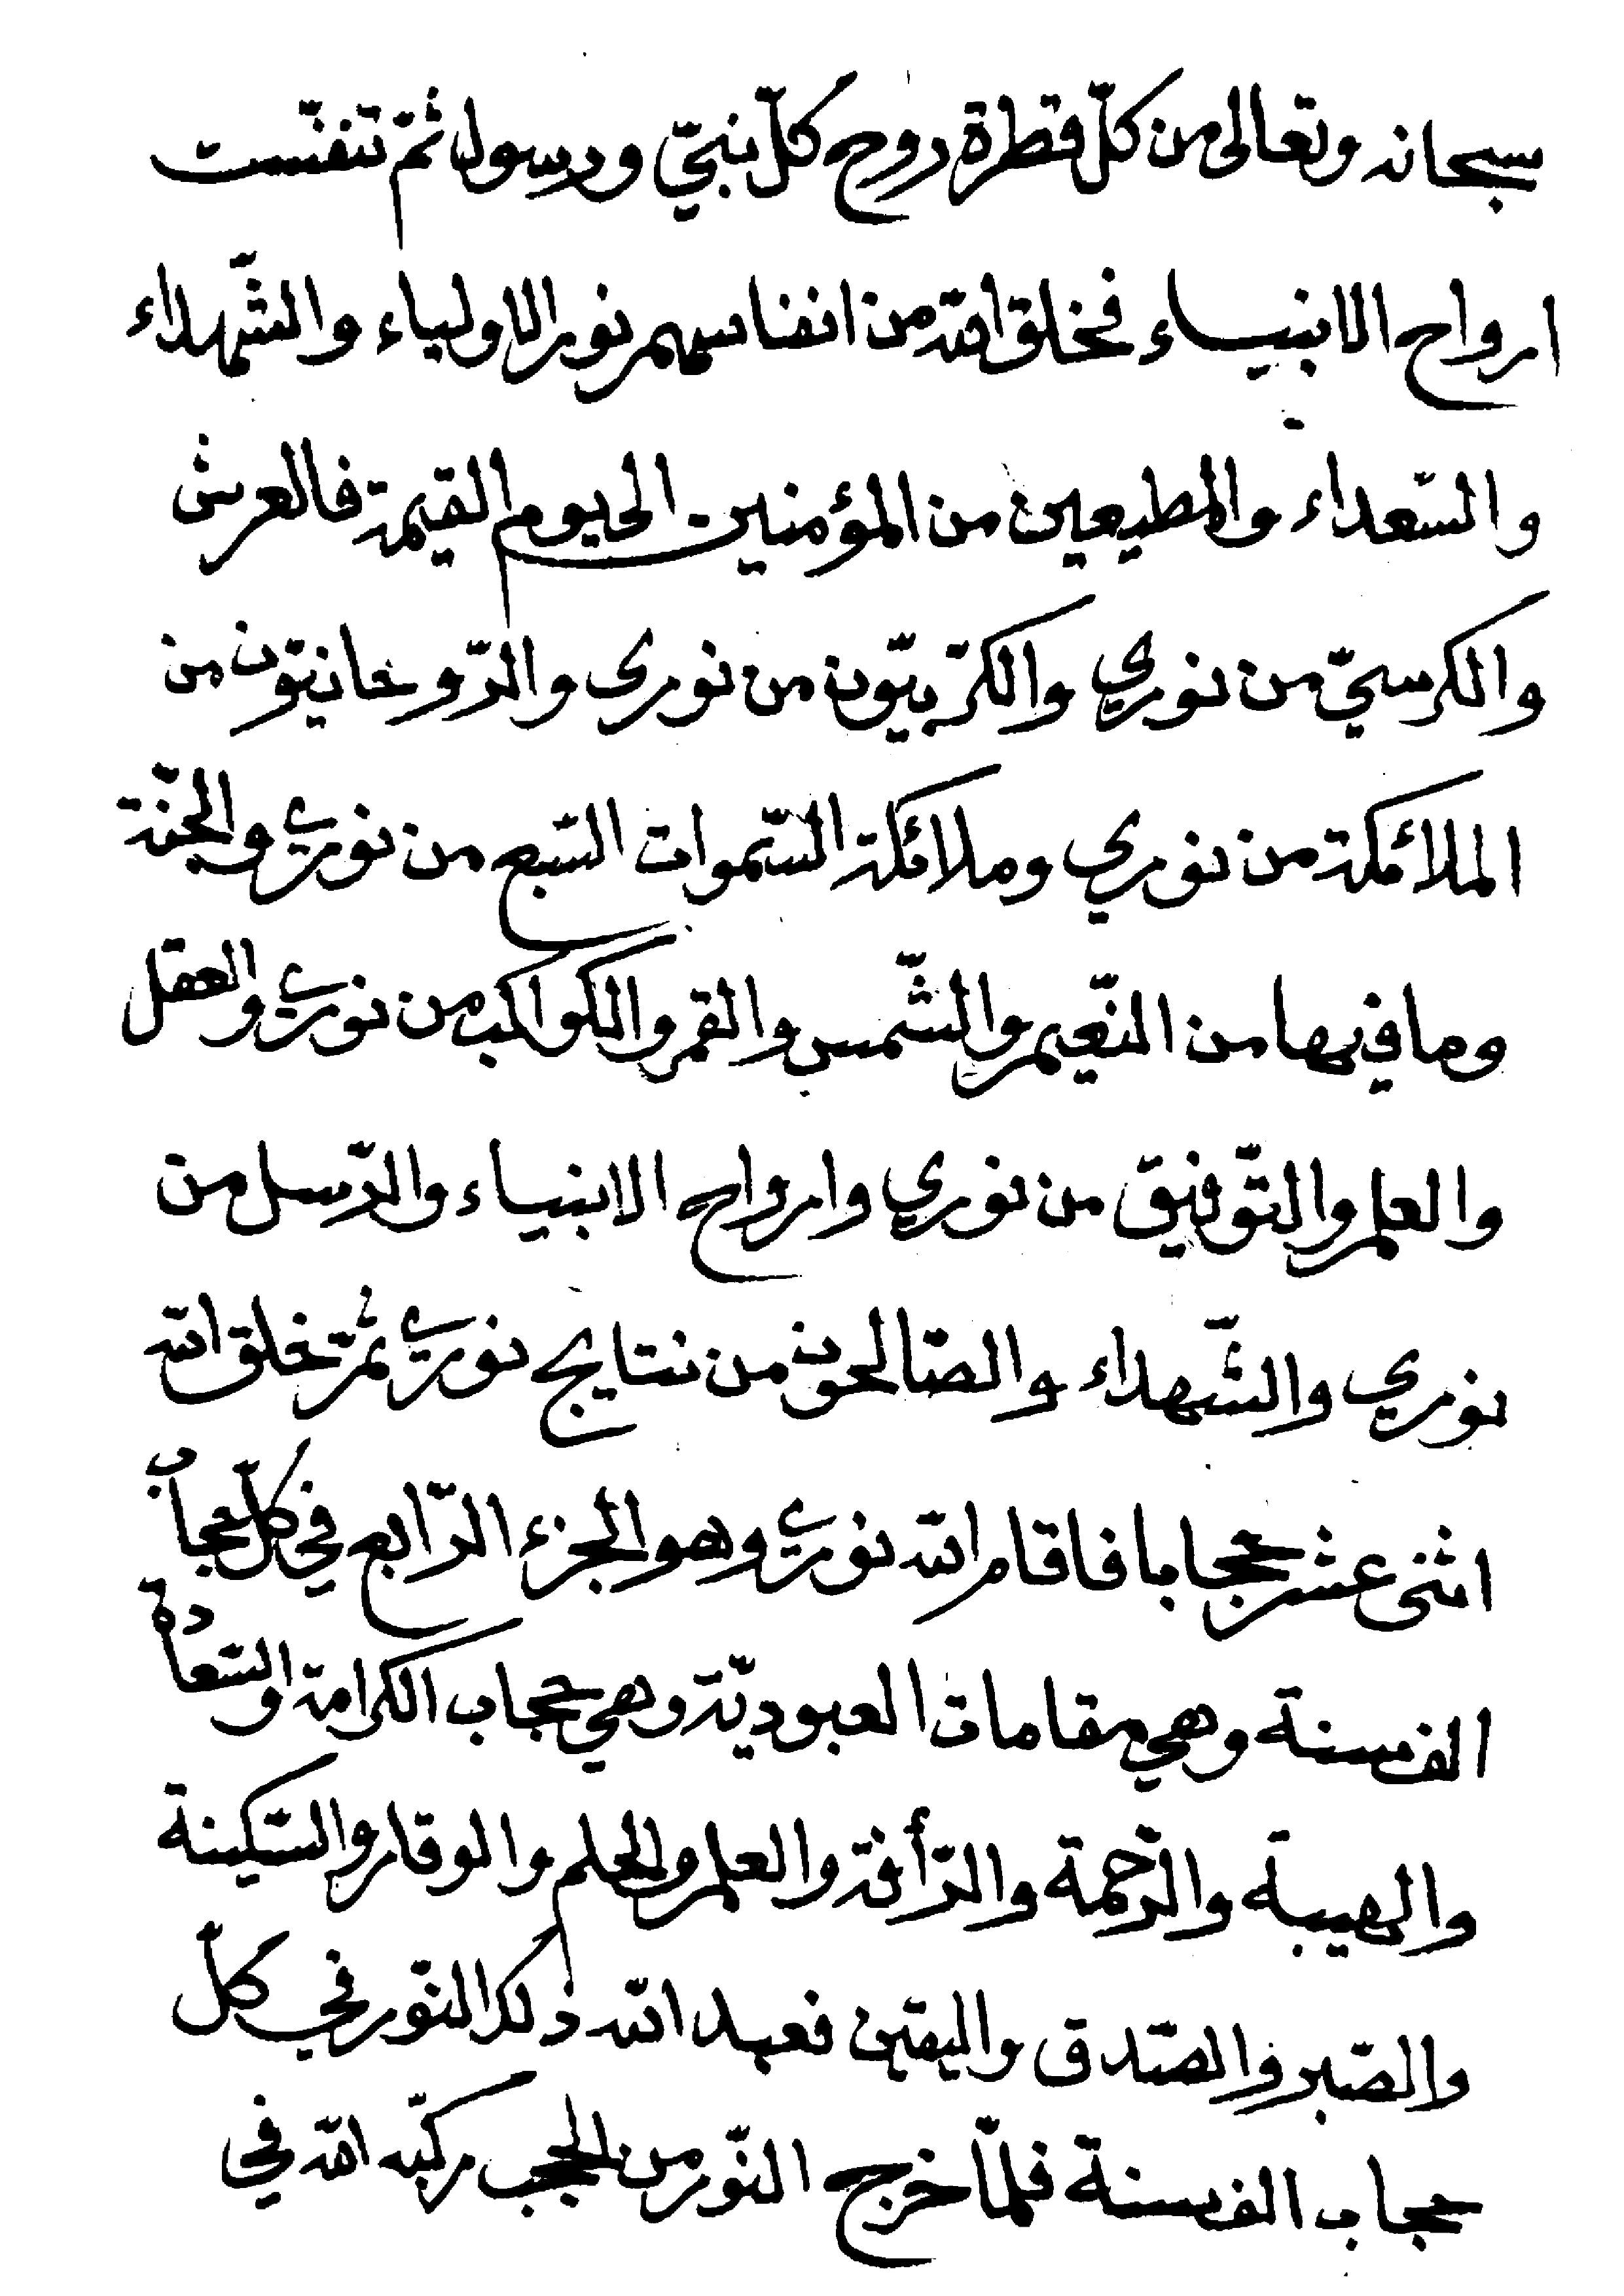 سبحانه وتعالى من كلّ قطرة روح كلّ نبيّ ورسول ثمّ تنفّست
ارواح الانبياء فخلق الله من انفاسهم نور الاولياء والشّهداء
والسّعداء والمطيعين من المؤمنين الى يوم القيمة فالعرش
والكرسيّ من نوري والكرّبيّون من نوري والرّوحانيّون من
الملائكة من نوري وملائكة السّموات السّبع من نوري والجنّة
وما فيها من النّعيم والشّمس والقمر والكواكب من نوري والعقل
والعلم والتّوفيق من نوري وارواح الانبياء والرّسل من
نوري والشّهداء والصّالحون من نتايج نوري ثمّ خلق الله
اثنى عشر حجابا فاقام الله نوري وهو الجزء الرّابع في كلّ حجاب
الف سنة وهي مقامات العبوديّة وهي حجاب الكرامة والسّعادة
والهيبة والرّحمة والرّأفة والعلم والحلم والوقار والسّكينة
والصّبر والصّدق واليقين فعبد الله ذلك النّور في كلّ
حجاب الف سنة فلمّا خرج النّور من الحجب ركبّه الله في